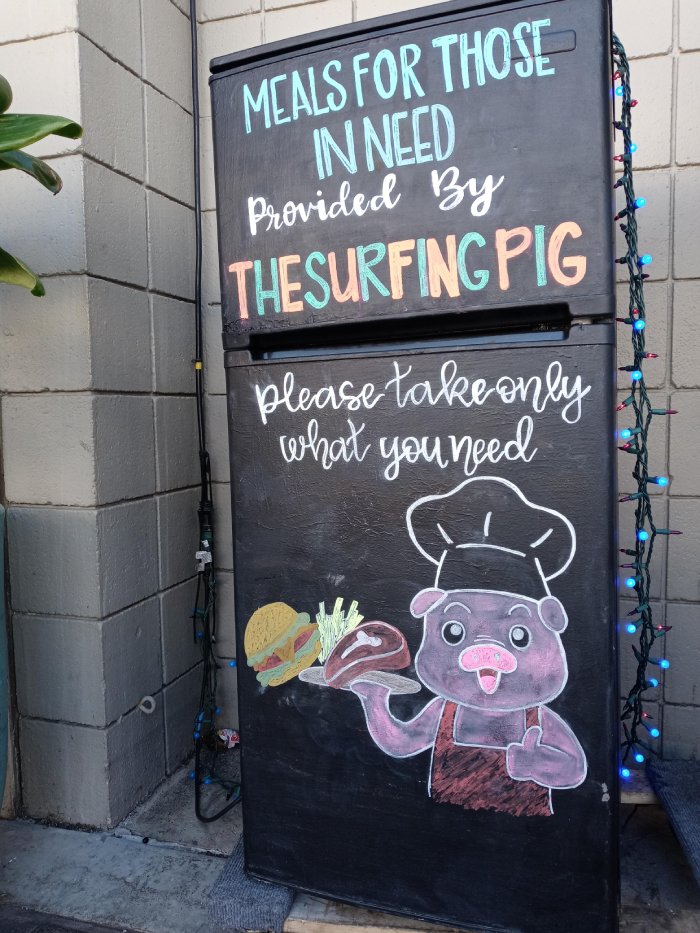 MEALS FOR THOSE
IN NEED
Provided By
THE SURFING PIG
please take only
what you need